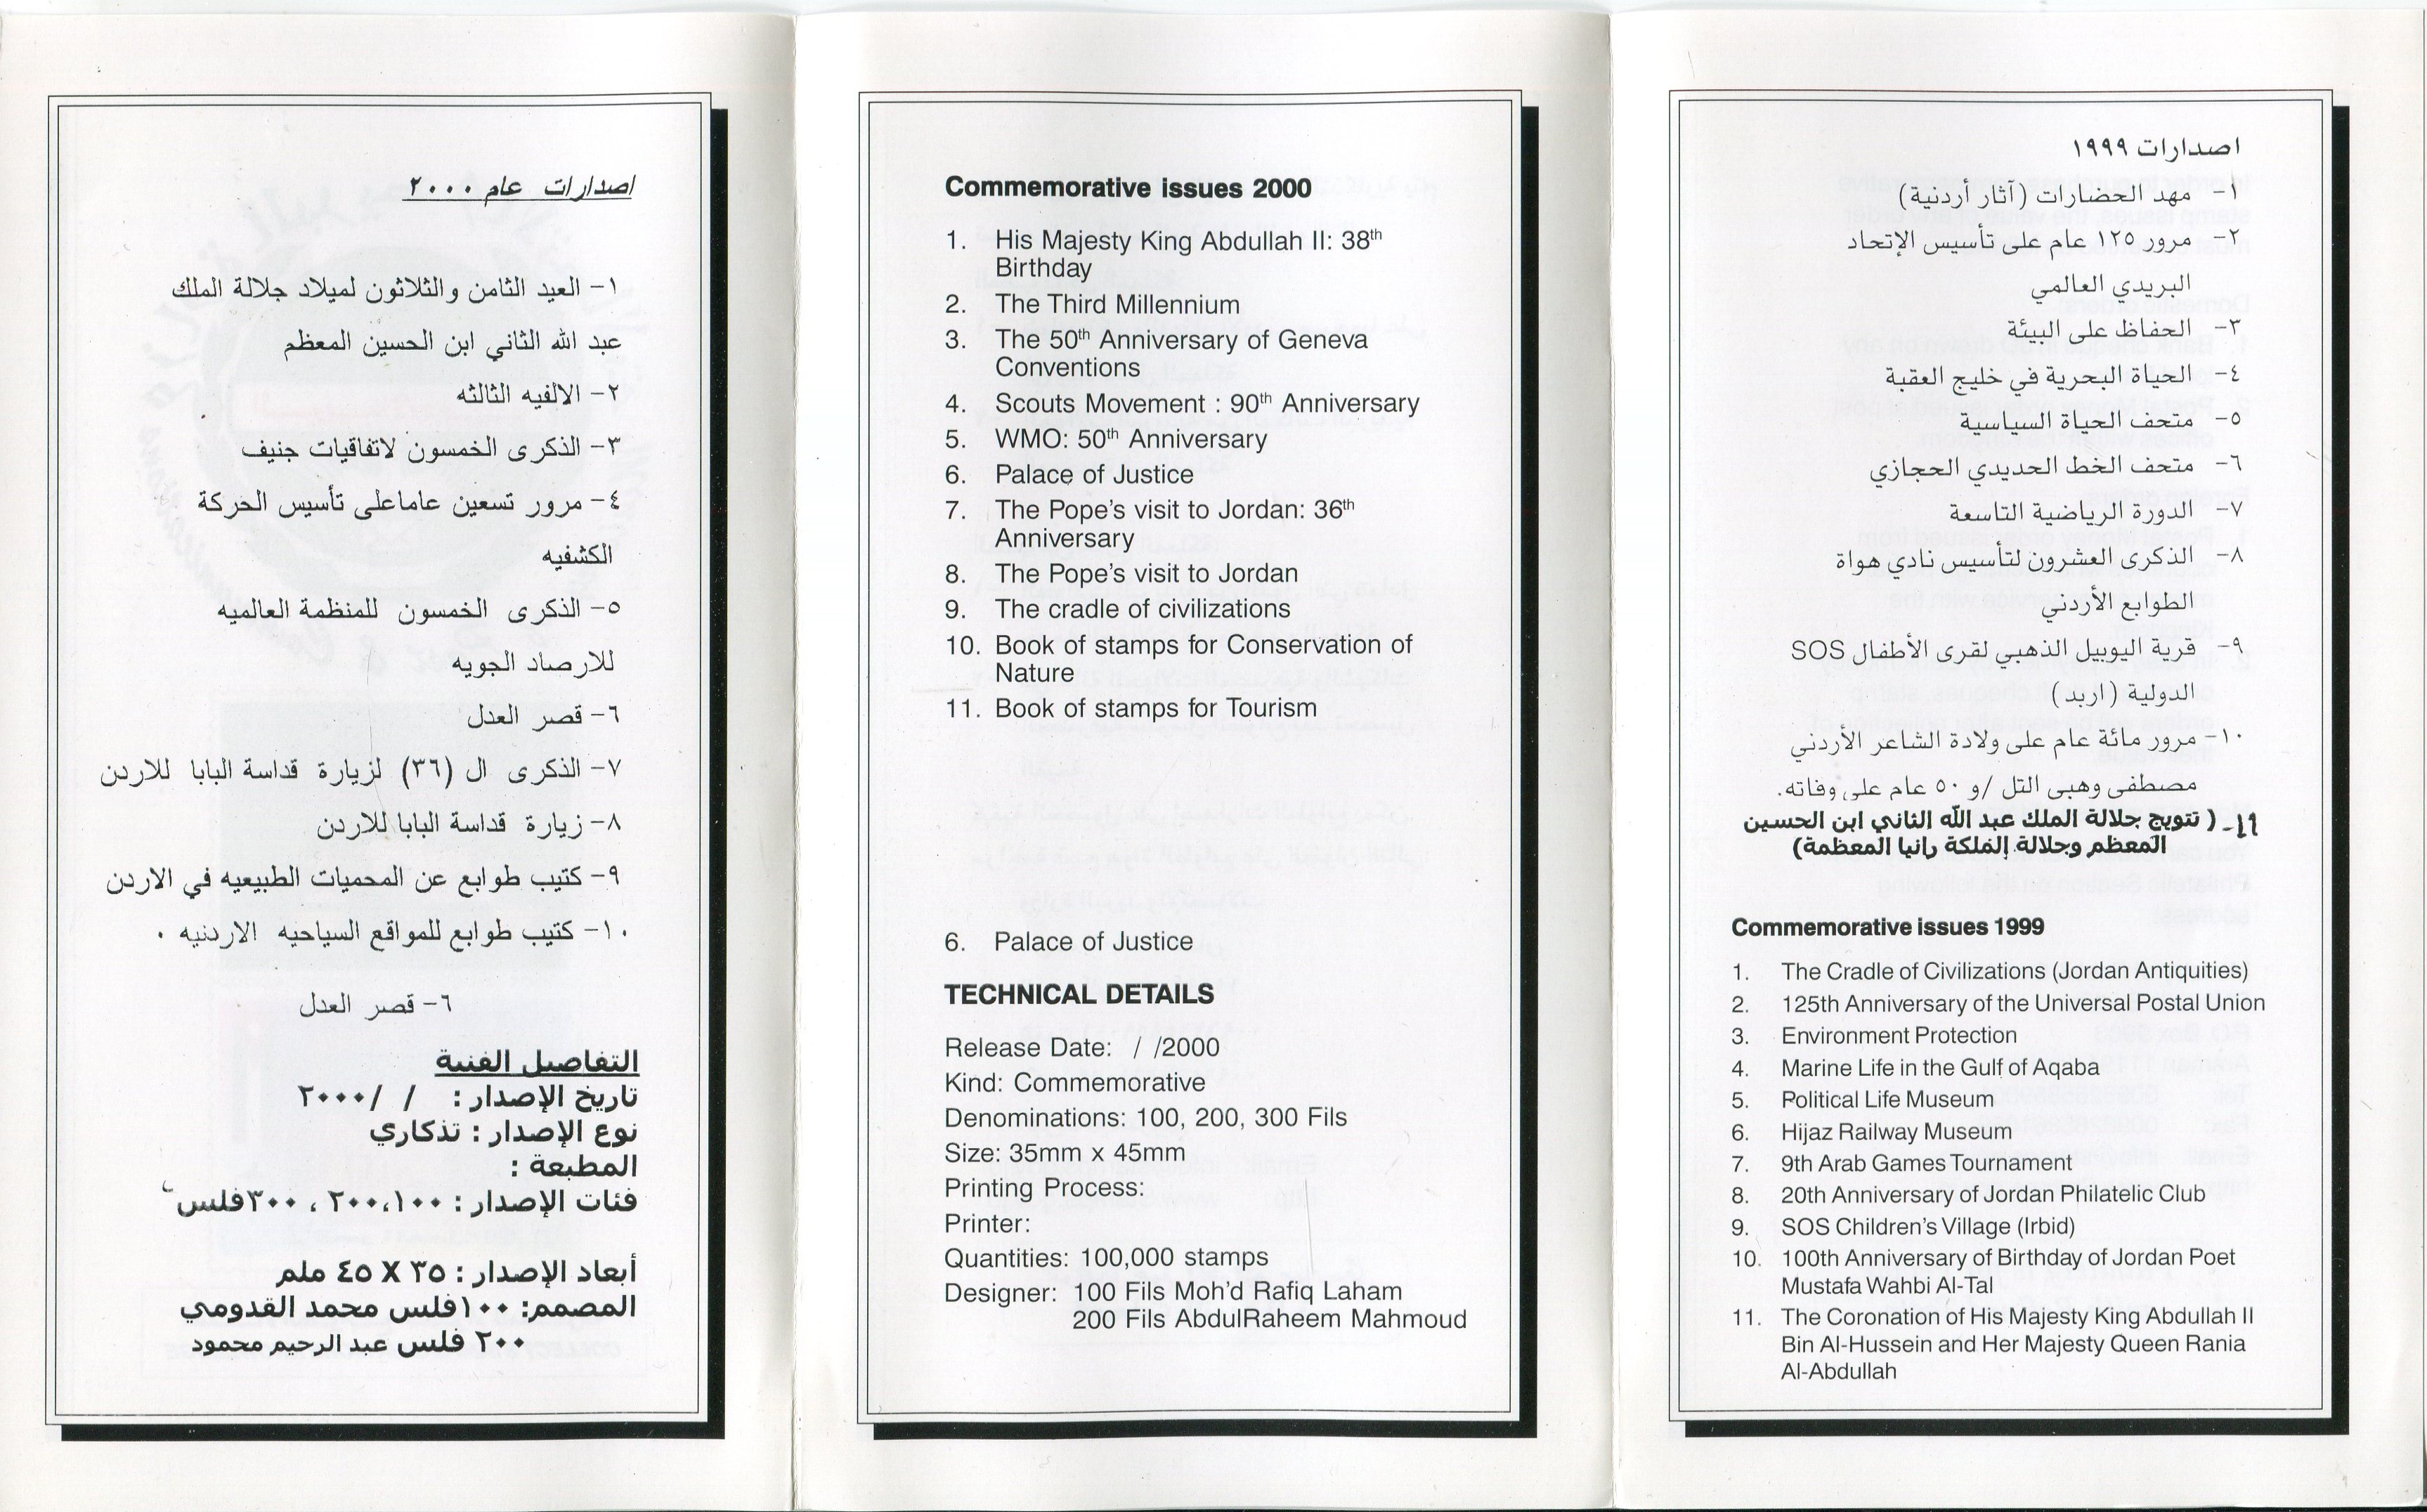 اصدارات عام ٢٠٠٠
١- العيد الثامن والثلاثون لميلاد جلالة الملك
عبد الله الثاني ابن الحسين المعظم
٢- الالفيه الثالثه
٣- الذكرى الخمسون لاتفاقيات جنيف
٤- مرور تسعين عاماعلى تأسيس الحركة
الكشفيه
٥- الذكرى الخمسون للمنظمة العالميه
للارصاد الجويه
٦- قصر العدل
٧- الذكرى ال (٣٦) لزيارة قداسة البابا للاردن
٨- زيارة قداسة البابا للاردن
٩- كتيب طوابع عن المحميات الطبيعيه في الاردن
١٠- كتيب طوابع للمواقع السياحيه الاردنيه .
٦- قصر العدل
التفاصيل الفنية
تاريخ الإصدار : / /٢٠٠٠
نوع الإصدار : تذكاري
المطبعة :
فئات الإصدار : ١٠٠،٢٠٠ ، ٣٠٠فلس
أبعاد الإصدار : ٣٥ X ٤٥ ملم
المصمم: ١٠٠فلس محمد القدومي
٢٠٠ فلس عبد الرحيم محمود
Commemorative issues 2000
1. His Majesty King Abdullah II: 38th
Birthday
2. The Third Millennium
3. The 50th Anniversary of Geneva
Conventions
4. Scouts Movement : 90th Anniversary
5. WMO: 50th Anniversary
6. Palace of Justice
7. The Pope's visit to Jordan: 36th
Anniversary
8. The Pope's visit to Jordan
9. The cradle of civilizations
10. Book of stamps for Conservation of
Nature
11. Book of stamps for Tourism
6. Palace of Justice
TECHNICAL DETAILS
Release Date: / /2000
Kind: Commemorative
Denominations: 100, 200, 300 Fils
Size: 35mm x 45mm
Printing Process:
Printer:
Quantities: 100,000 stamps
Designer: 100 Fils Moh'd Rafiq Laham
200 Fils AbdulRaheem Mahmoud
اصدارات ١٩٩٩
١- مهد الحضارات (آثار أردنية)
٢- مرور ١٢٥ عام على تأسيس الإتحاد
البريدي العالمي
٣- الحفاظ على البيئة
٤- الحياة البحرية في خليج العقبة
٥- متحف الحياة السياسية
٦- متحف الخط الحديدي الحجازي
٧- الدورة الرياضية التاسعة
٨- الذكرى العشرون لتأسيس نادي هواة
الطوابع الأردني
٩- قرية اليوبيل الذهبي لقرى الأطفال SOS
الدولية (اربد)
١٠- مرور مائة عام على ولادة الشاعر الأردني
مصطفى وهبى التل /و ٥٠ عام على وفاته.
١١- ( تتويج جلالة الملك عبد الله الثاني ابن الحسين
المعظم وجلالة الملكة رانيا المعظمة)
Commemorative issues 1999
1. The Cradle of Civilizations (Jordan Antiquities)
2. 125th Anniversary of the Universal Postal Union
3. Environment Protection
4. Marine Life in the Gulf of Aqaba
5. Political Life Museum
6. Hijaz Railway Museum
7. 9th Arab Games Tournament
8. 20th Anniversary of Jordan Philatelic Club
9. SOS Children's Village (Irbid)
10. 100th Anniversary of Birthday of Jordan Poet
Mustafa Wahbi Al-Tal
11. The Coronation of His Majesty King Abdullah II
Bin Al-Hussein and Her Majesty Queen Rania
Al-Abdullah